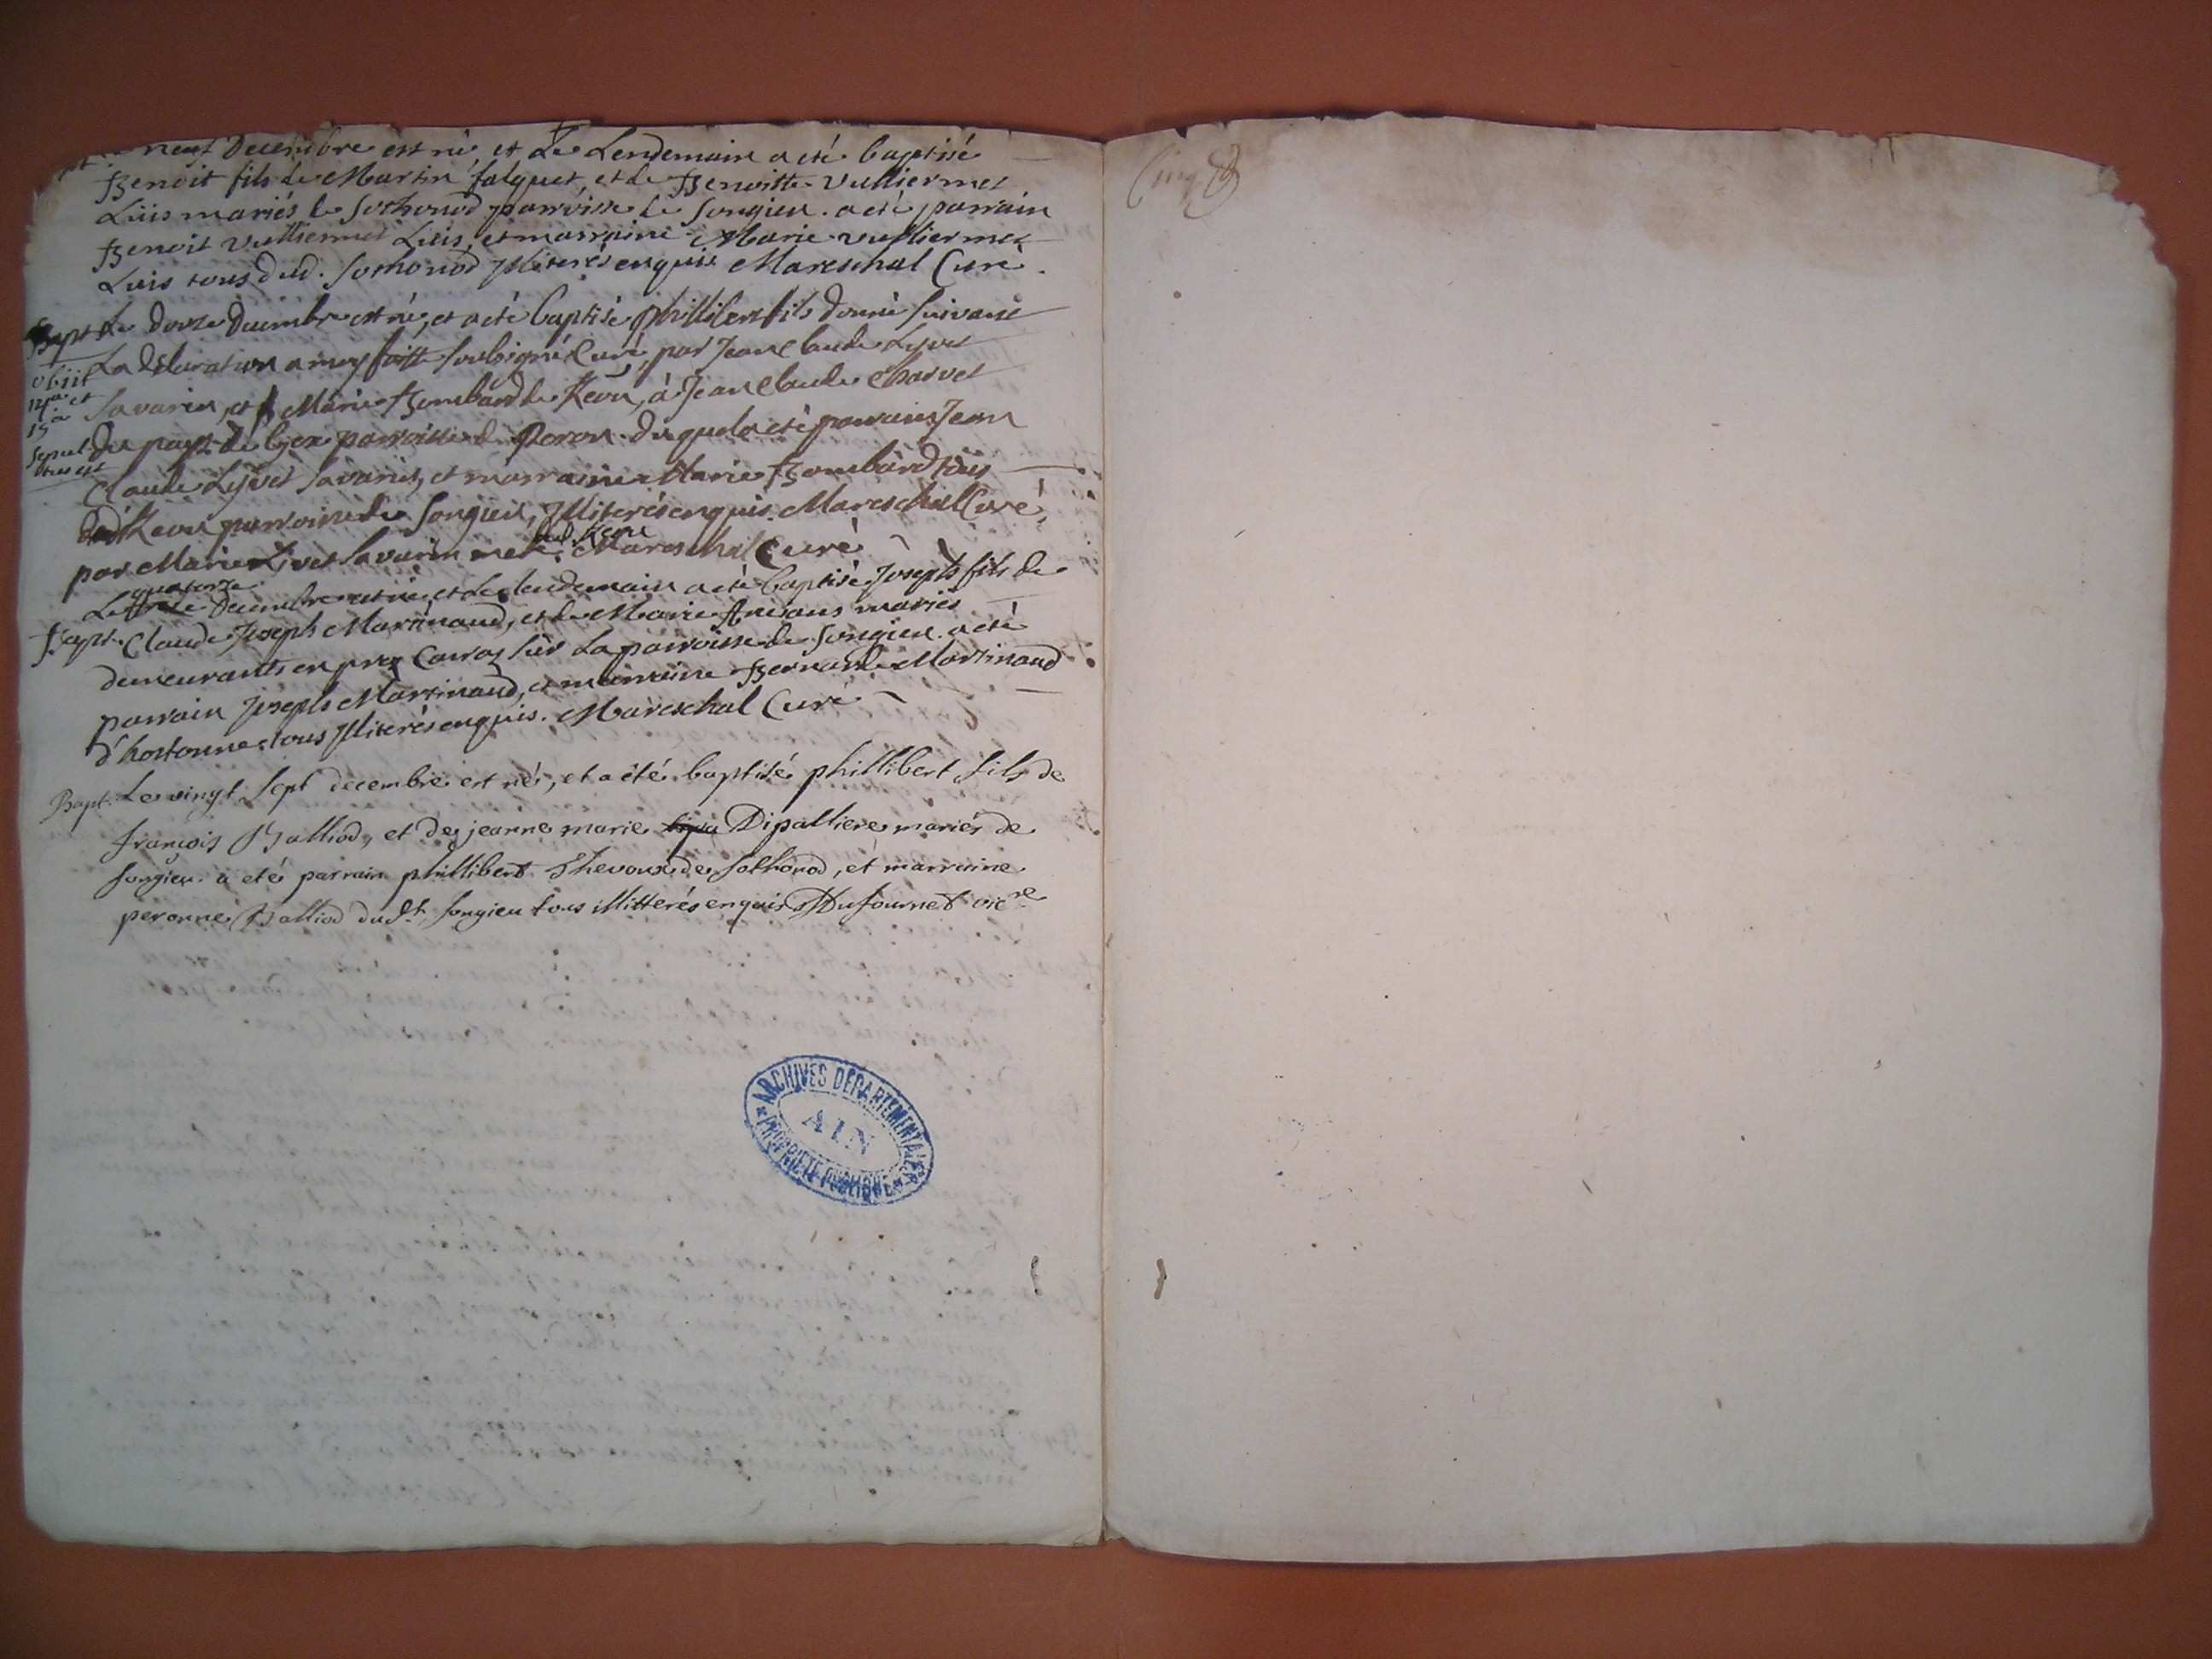 neuf Decembre est né et Le Lendemain a eté baptisé
Benoit fils de Martin falquet, et de Benoitte Vulliermet
Luis mariés de Sothonod parroisse de Songieu. a eté parrain
Benoit Vulliermet Luis, et marraine Marie Vulliermet
Luis tous dud. Sothonod Illiterés enquis Mareschal Curé.
Bapt. Le douze decembre est né, et a eté baptisé phillibert fils donné suivant
La declaration a moy faitte soubsigné Curé, par Jean Claude Lyvet
obiit
12a et
15a
sepul
tus est
Savarin, et Marie Bombard de Reou, à Jean Claude Charvet
du pays de Gex parroisse de Peron. duquel a eté parrain Jean
Claude Lyvet Savarin, et marraine Marie Bombard tous
dud. Reou parroisse de Songieu, Illiterés enquis. Mareschal Curé,
par Marie Livet Savarin dud. Reou Mareschal Curé
quatorze
Bapt. Le decembre est né et Le lendemain a eté baptisé Joseph fils de
Claude Joseph Martinaud, et de Marie mariés
demeurants en pra Sur La parroisse de Songieu. a eté
parrain Joseph Martinaud, et marraine Bernarde Martinaud
d'hostonne tous Illiterés enquis. Mareschal Curé
Bapt. Le vingt Sept decembre est né, et a été baptisé phillibert fils de
françois Balliod, et de jeanne marie Dipalliere mariés de
Songieu. a eté parrain phillibert Thevoux de Sothonod, et marraine
peronne Balliod dudt. Songieu tous illitterés enquis Dufournet vicre
ARCHIVES DÉPARTEMENTALES
AIN
PROPRIÉTÉ PUBLIQUE
Cinq